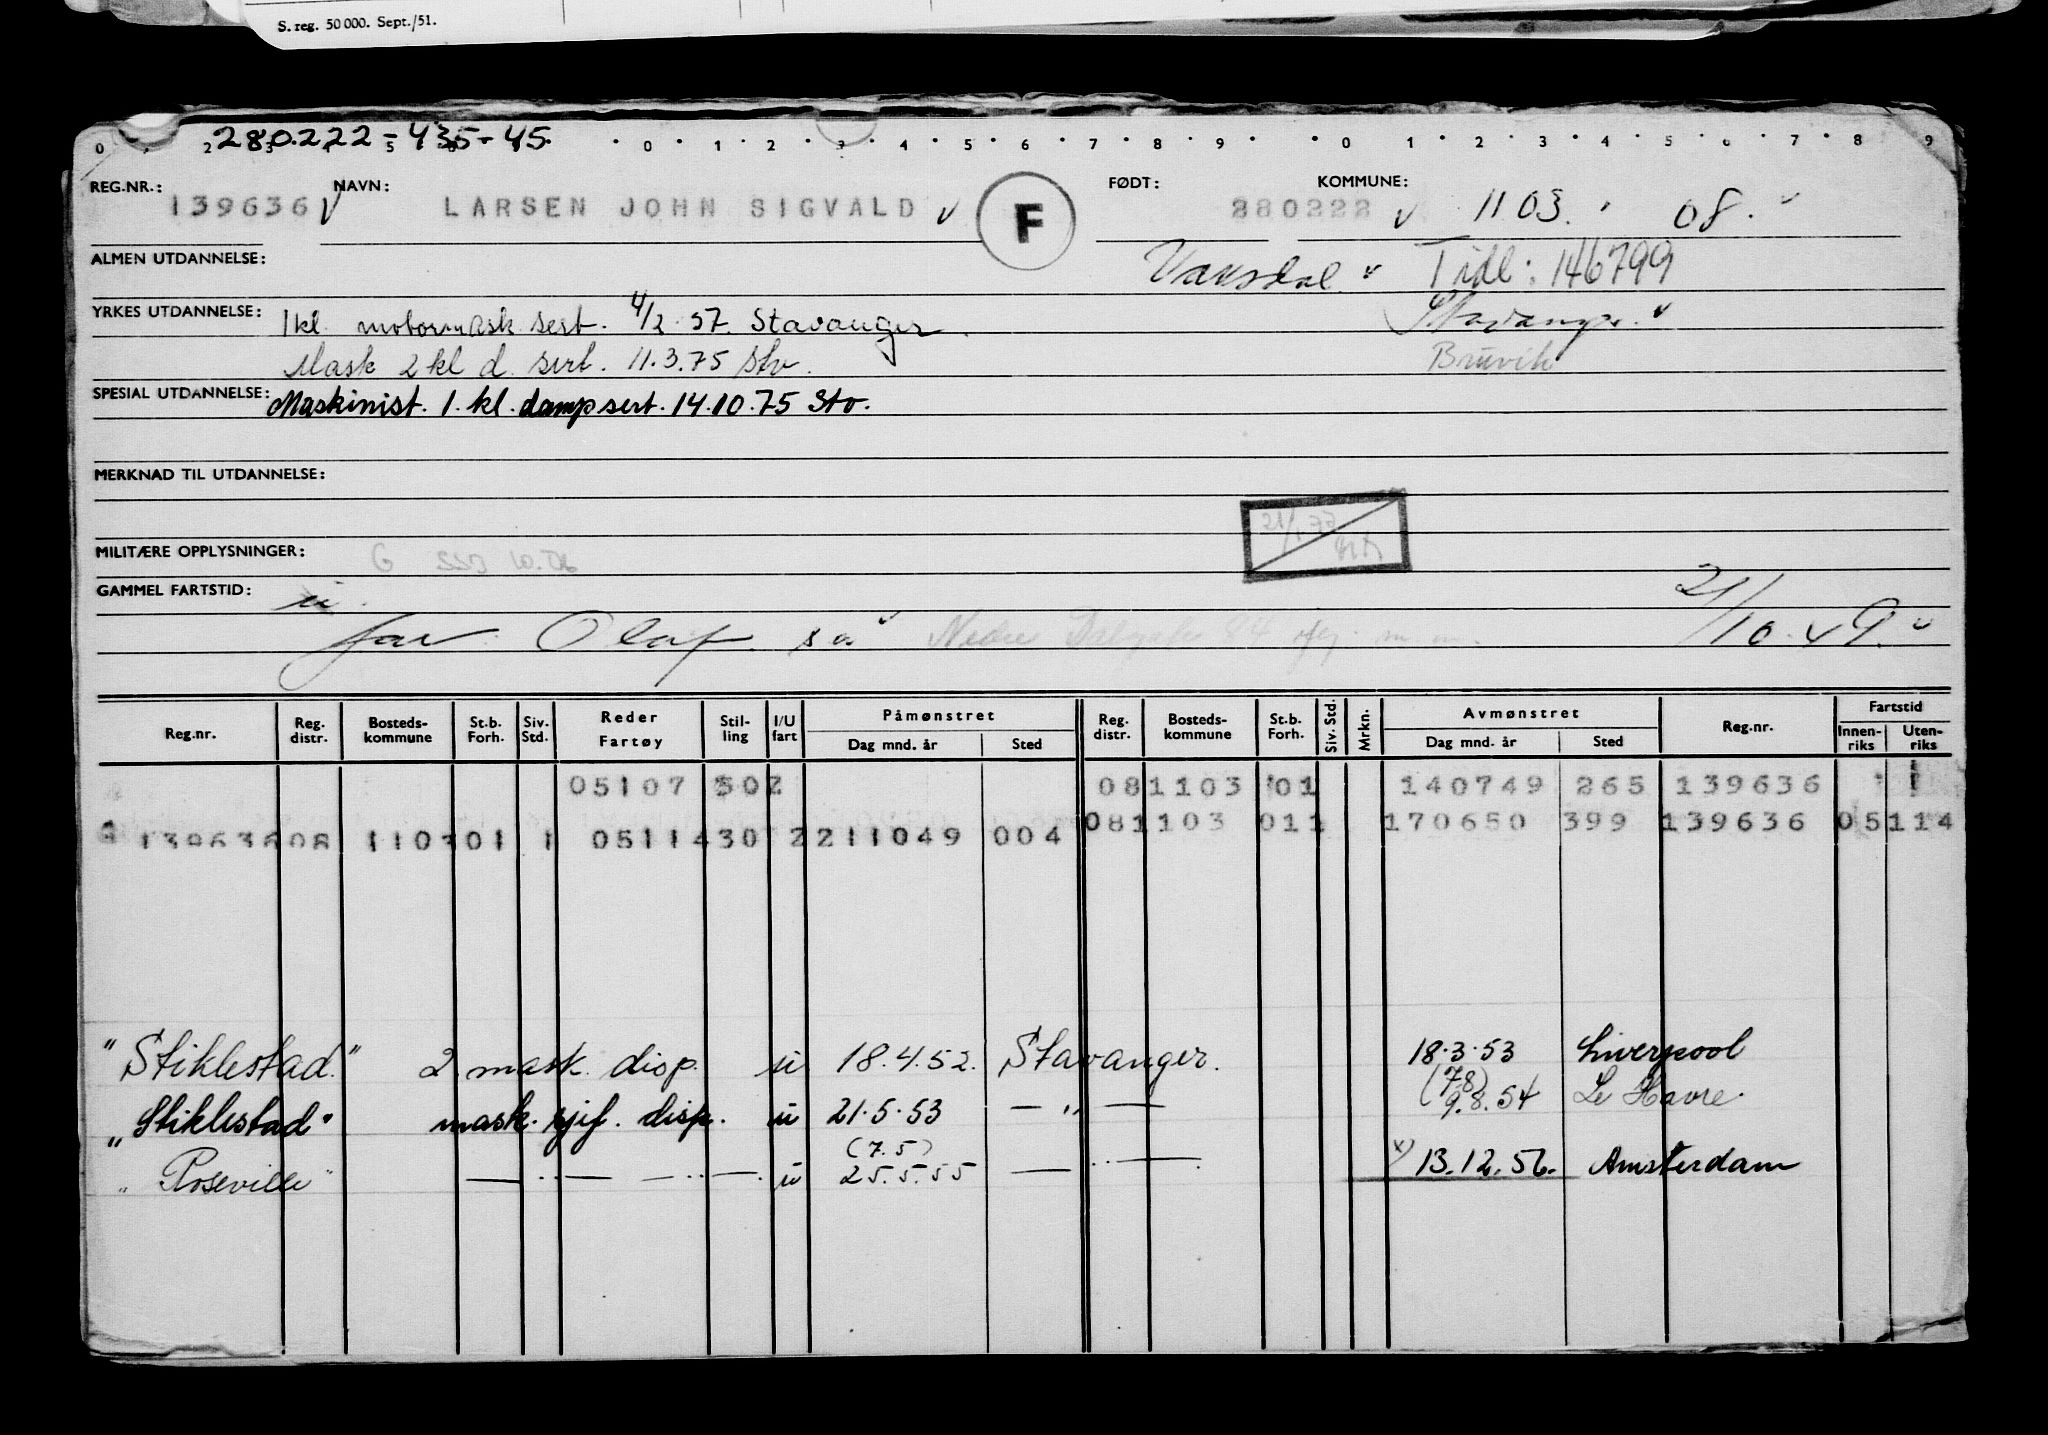 S. reg. 50 000. Sept./51.
280222-435-45
0 2 3 5 0 1 2 3 4 5 6 7 8 9 0 1 2 3 4 5 6 7 8 9
REG.NR.: NAVN: FØDT: KOMMUNE:
139636 LARSEN JOHN SIGVALD F 280222 1103. 08.
ALMEN UTDANNELSE: Vaksdal Tidl: 146799
YRKES UTDANNELSE: 1 kl. motormask sert. 4/2-57. Stavanger Stavanger
Mask 2 kl d. sert. 11.3.75 Stv. Bruvik
SPESIAL UTDANNELSE: Maskinist. 1. kl. damp sert. 14.10.75 Stv.
MERKNAD TIL UTDANNELSE:
21/1 77
MILITÆRE OPPLYSNINGER: G SSD 10.
GAMMEL FARTSTID: u.
far: Olaf s.a. Nedre m.m. 21/10.49.
Reg.nr. Reg. distr. Bosteds-kommune St.b. Forh. Siv. Std. Reder Fartøy Stil-ling I/U fart Påmønstret Dag mnd. år Sted Reg. distr. Bosteds-kommune St.b. Forh. Siv. Std. Mrkn. Avmønstret Dag mnd. år Sted Reg.nr. Fartstid Innen-riks Uten-riks
05107 302 081103 01 140749 265 139636 1
139636 08 110301 1 05114 30 2 211049 004 081103 011 170650 399 139636 05 114
"Stiklestad." 2 mask. disp. u 18.4.52. Stavanger. 18.3.53 Liverpool
"Stiklestad" mask. sjef. disp. u 21.5.53 — " — (7.8) 9.8.54 Le Havre.
"Roseville" — " — — " — u (7.5) 25.5.55 — " — x) 13.12.56. Amsterdam